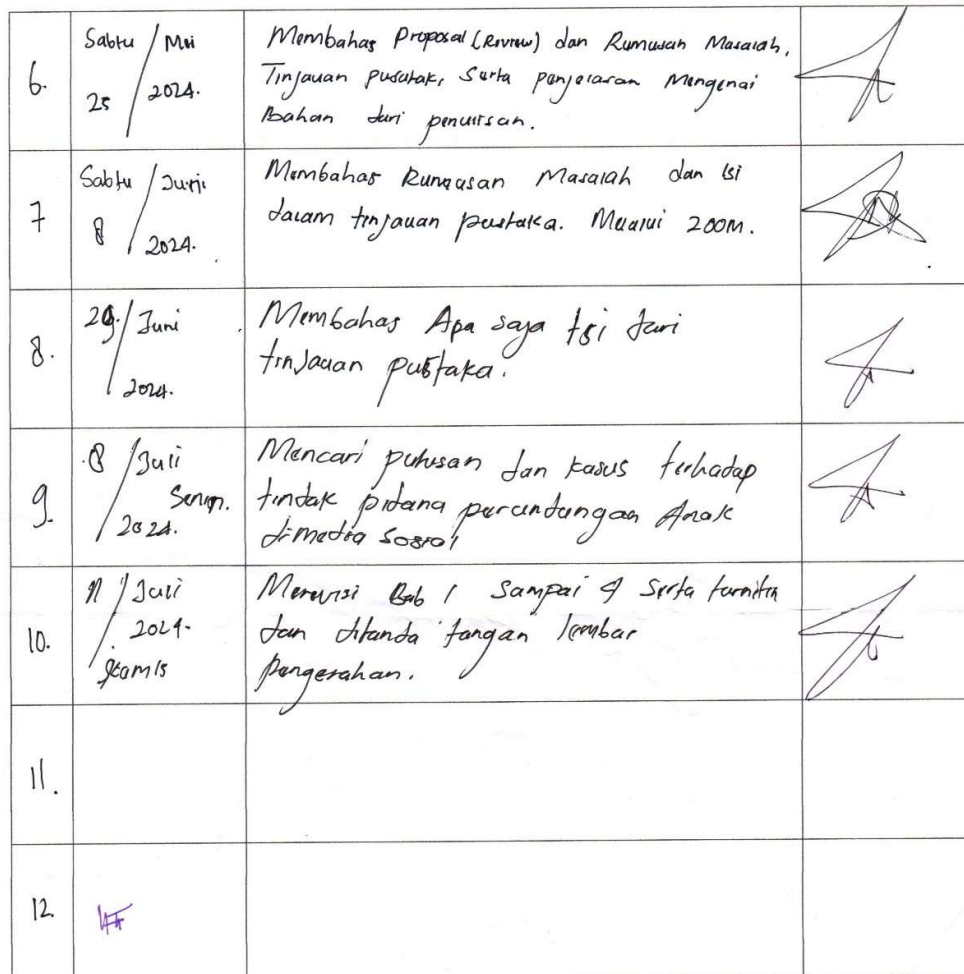 6.
Sabtu / Mei
25 / 2024.
Membahas Proposal (Review) dan Rumusan Masalah,
Tinjauan pusatak, Serta penjelasan Mengenai
Bahan dari penulisan.
7
Sabtu / Juni
8 / 2024.
Membahas Rumusan Masalah dan Isi
dalam tinjauan pustaka. Melalui ZOOM.
8.
29 / Juni
2024.
Membahas Apa saja Isi dari
tinjauan pustaka.
9.
8 / Juli
Senin.
2024.
Mencari putusan dan kasus terhadap
tindak pidana perundungan Anak
dimedia sosial
10.
11 / Juli
2024.
Kamis
Merevisi Bab 1 Sampai 4 Serta turnitin
dan ditanda tangan lembar
pengesahan.
11.
12.